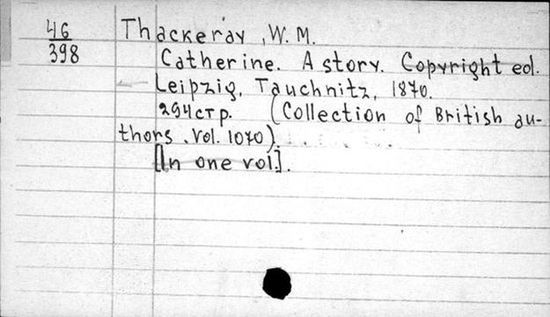 46
398
Thackeray, W. M.
Catherine. A story. Copyright ed.
Leipzig, Tauchnitz, 1870.
294стр. (Collection of British au-
thors. Vol. 1070).
[In one vol.].